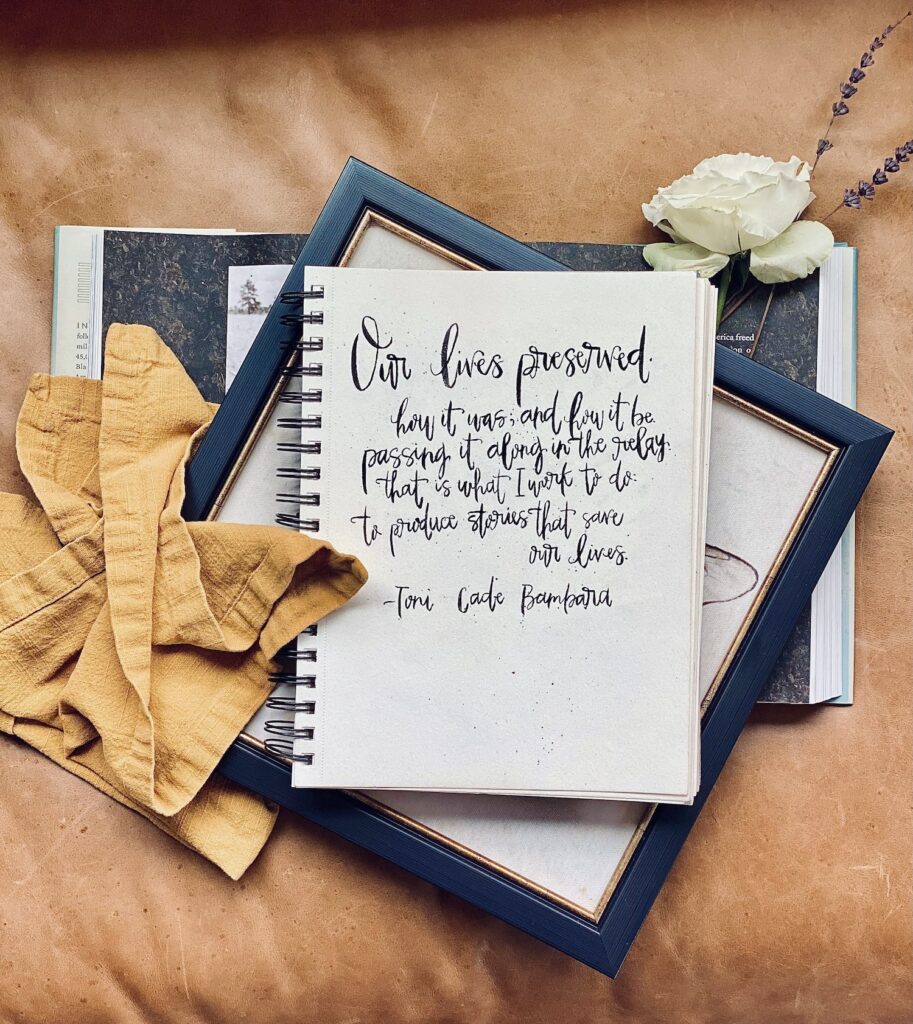 Our lives preserved.
how it was; and how it be.
passing it along in the relay.
that is what I work to do:
to produce stories that save
our lives.
-Toni Cade Bambara
I N
foll
mil
45,
Bla
erica freed